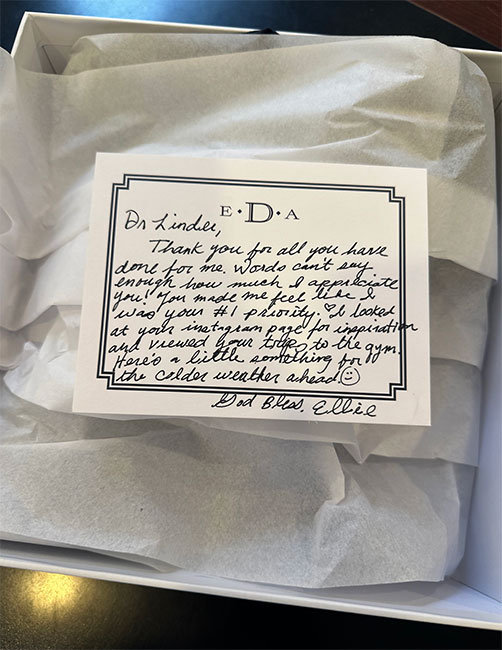 E · D · A
Dr Linder,
Thank you for all you have
done for me. Words can't say
enough how much I appreciate
you! You made me feel like I
was your #1 priority. I looked
at your instagram page for inspiration
and viewed your trips to the gym.
Here's a little something for
the colder weather ahead
God Bless. Ellie